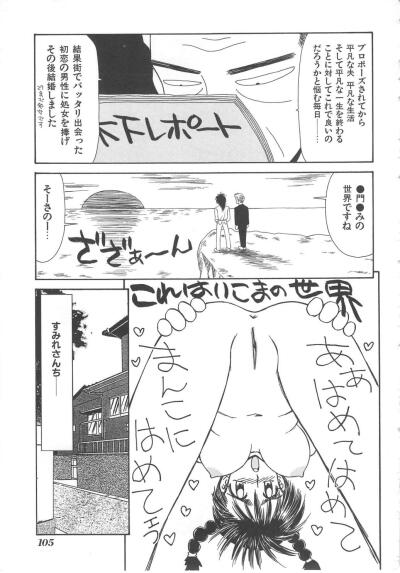 プロポーズされてから
平凡な夫 平凡な生活
そして平凡な一生を終わる
ことに対してこれで良いの
だろうかと悩む毎日…
結果街でバッタリ出会った
初恋の男性に処女を捧げ
その後結婚しました
木下レポート
●門●みの
世界ですね
そーさのー…
ざざぁ〜ん
これはいこまの世界
ああ
はめてはめて
まんこに
はめてェっ
すみれさんち――
105